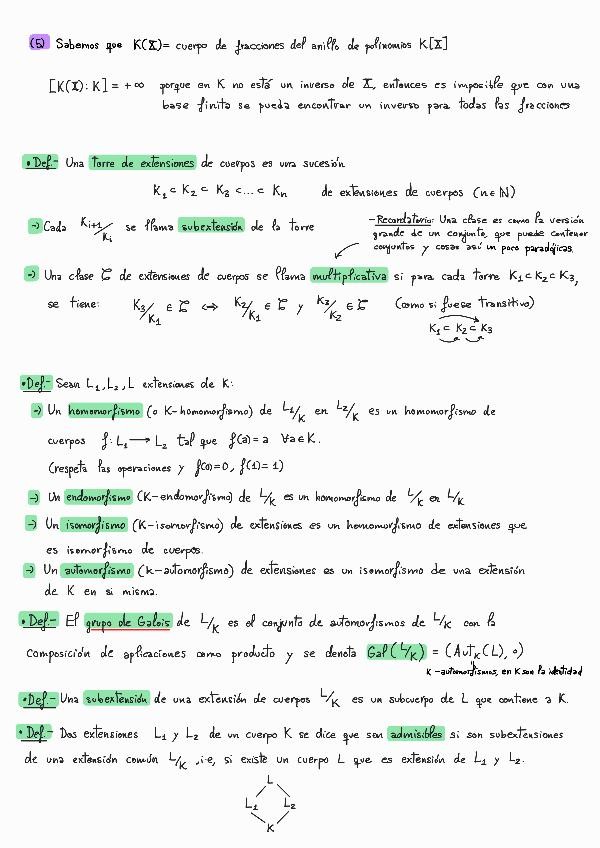 (5) Sabemos que K(X) = cuerpo de fracciones del anillo de polinomios K[X]
[K(X):K] = +∞ porque en K no está un inverso de X, entonces es imposible que con una
base finita se pueda encontrar un inverso para todas las fracciones
• Def.- Una torre de extensiones de cuerpos es una sucesión
K₁ ⊂ K₂ ⊂ K₃ ⊂ ... ⊂ Kₙ de extensiones de cuerpos (n ∈ ℕ)
→ Cada Kᵢ₊₁/Kᵢ se llama subextensión de la torre
- Recordatorio: Una clase es como la versión
grande de un conjunto, que puede contener
conjuntos y cosas así un poco paradójicas.
→ Una clase ζ de extensiones de cuerpos se llama multiplicativa si para cada torre K₁ ⊂ K₂ ⊂ K₃,
se tiene: K₃/K₁ ∈ ζ ⟺ K₂/K₁ ∈ ζ y K₃/K₂ ∈ ζ (como si fuese transitivo)
K₁ ⊂ K₂ ⊂ K₃
• Def.- Sean L₁, L₂, L extensiones de K:
→ Un homomorfismo (o K-homomorfismo) de L₁/K en L₂/K es un homomorfismo de
cuerpos f: L₁ → L₂ tal que f(a) = a ∀a ∈ K.
(respeta las operaciones y f(0)=0, f(1)=1)
→ Un endomorfismo (K-endomorfismo) de L/K es un homomorfismo de L/K en L/K
→ Un isomorfismo (K-isomorfismo) de extensiones es un homomorfismo de extensiones que
es isomorfismo de cuerpos.
→ Un automorfismo (k-automorfismo) de extensiones es un isomorfismo de una extensión
de K en si misma.
• Def.- El grupo de Galois de L/K es el conjunto de automorfismos de L/K con la
composición de aplicaciones como producto y se denota Gal(L/K) = (Aut_K(L), ∘)
K-automorfismos, en K son la identidad
• Def.- Una subextensión de una extensión de cuerpos L/K es un subcuerpo de L que contiene a K.
• Def.- Dos extensiones L₁ y L₂ de un cuerpo K se dice que son admisibles si son subextensiones
de una extensión común L/K, i.e, si existe un cuerpo L que es extensión de L₁ y L₂.
L
L₁ L₂
K